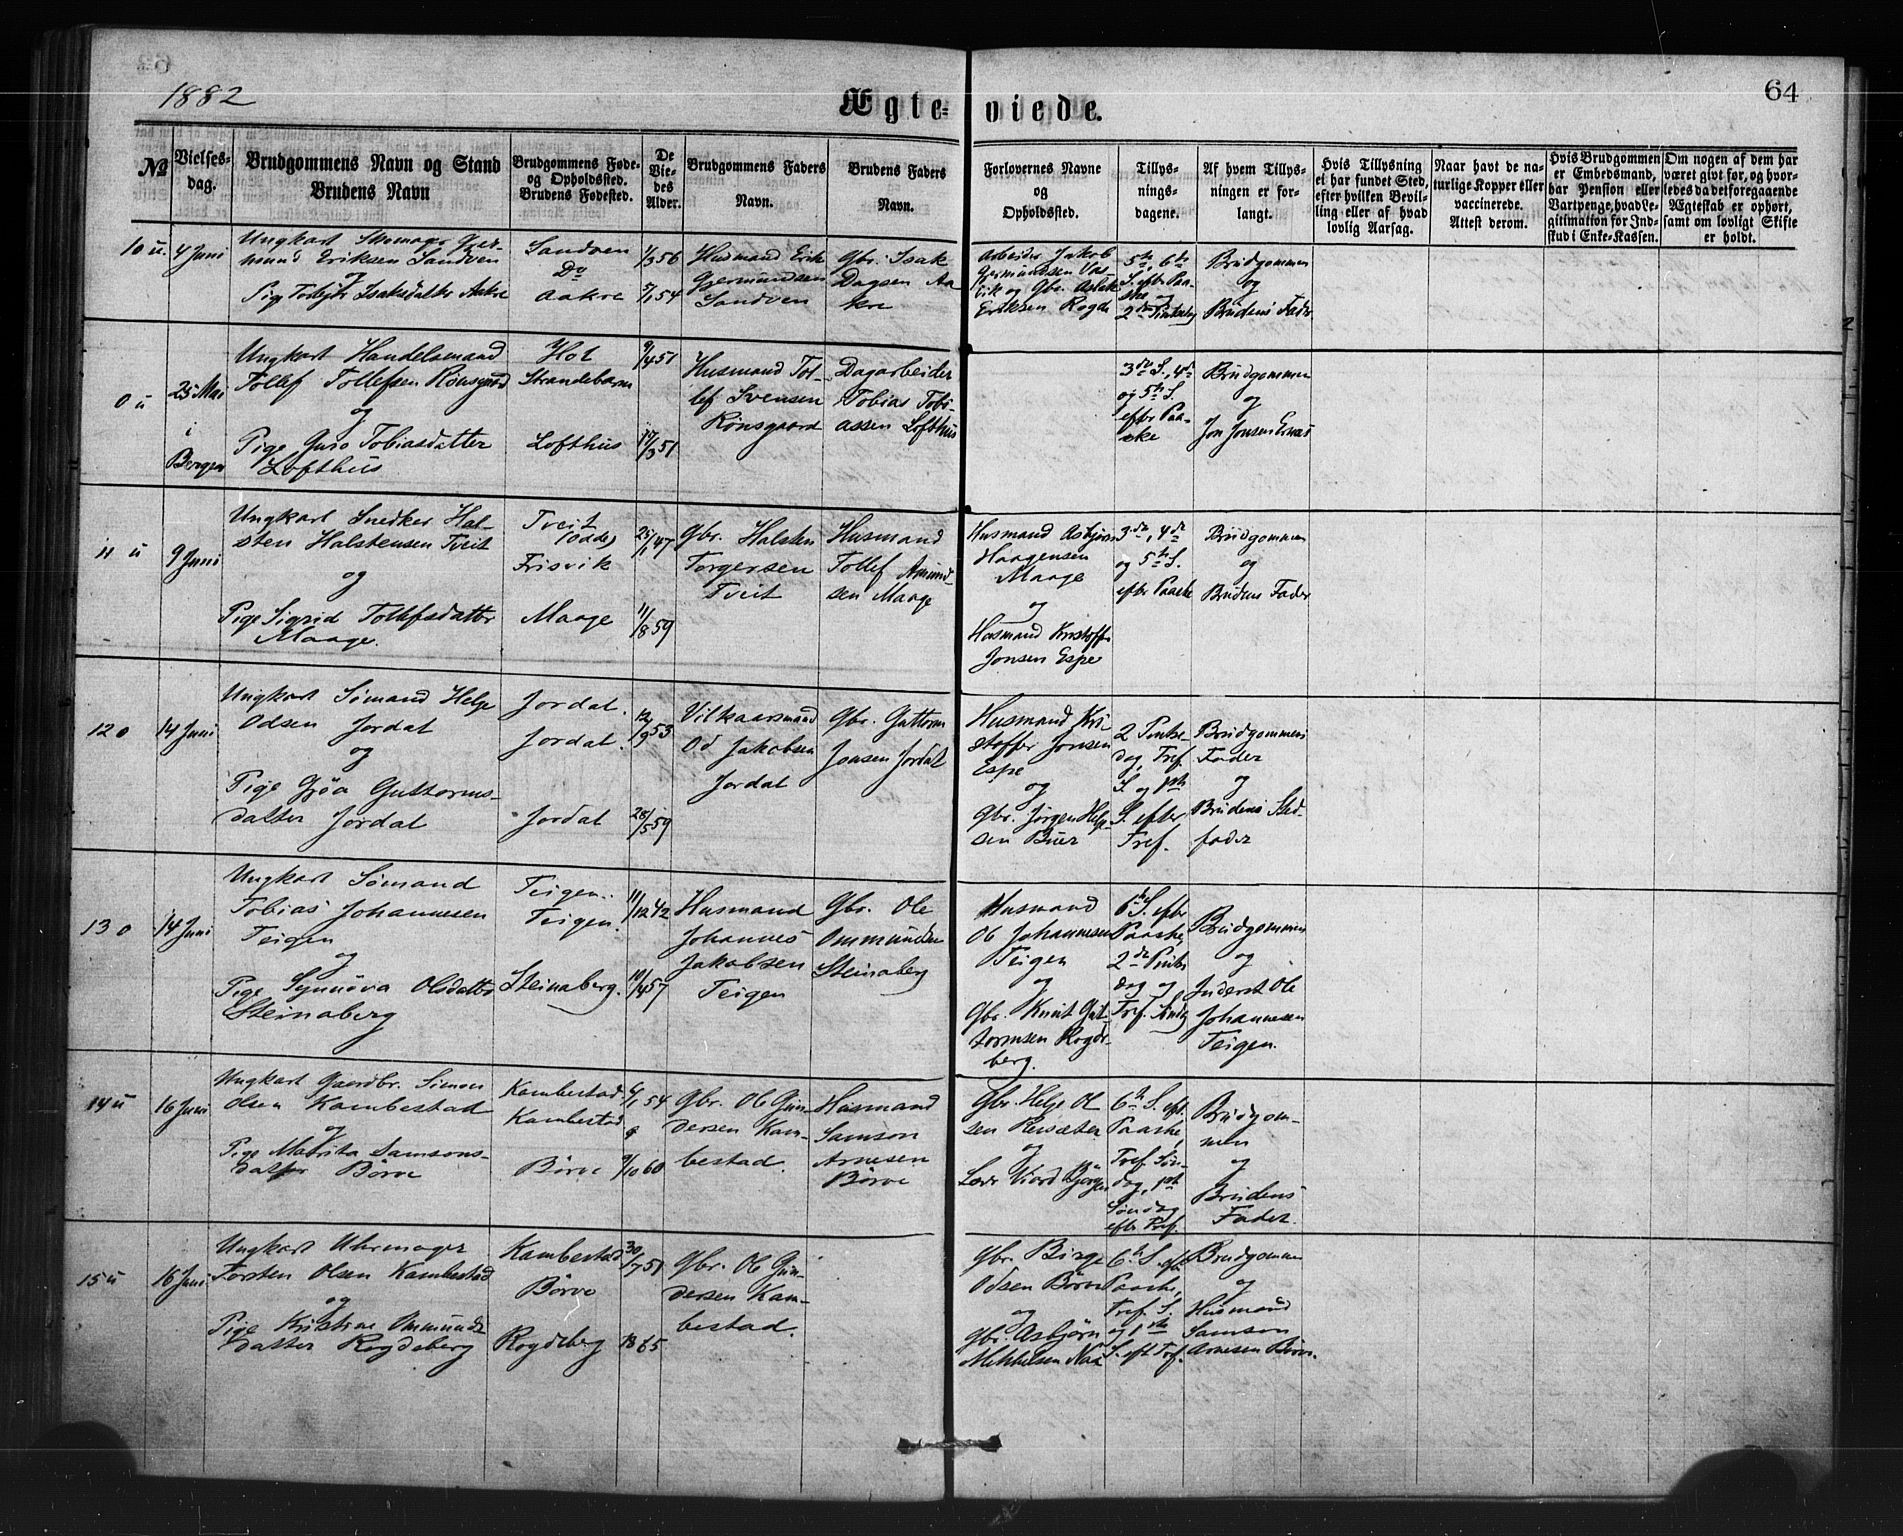 1882
64
Ægte-viede.
№
Vielses-
dag.
Brudgommens Navn og Stand
Brudens Navn
Brudgommens Føde-
og Opholdssted.
Brudens Fødested.
De
Vie-
des
Alder.
Brudgommens Faders
Navn.
Brudens Faders
Navn.
Forlovernes Navne
og
Opholdssted.
Tillys-
nings-
dagene.
Af hvem Tillys-
ningen er for-
langt.
Hvis Tillysning
ei har fundet Sted,
efter hvilken Bevil-
ling eller af hvad
lovlig Aarsag.
Naar havt de na-
turlige Kopper eller
vaccinerede.
Attest derom.
Hvis Brudgommen
er Embedsmand,
har Pension eller
Vartpenge, hvad Le-
gitimation for Ind-
skud i Enke-Kassen.
Om nogen af dem har
været givt før, og hvor-
ledes da det foregaaende
Ægteskab er ophørt,
samt om lovligt Skifte
er holdt.
10 u.
4 Juni
Ungkarl Skomager Gjer-
mund Eriksen Sandven
og
Pige Torbjör Isaksdatter Aakre
Sandven
Do
Aakre
1/3 56
7/1 54
Husmand Erik
Gjermundsen
Sandven
Gbr. Isak
Dagsen Aa-
kre
Arbeider Jakob
Germundsen
og Gbr. Aslak
Eriksen Rogde
5te, 6te
S. efter Paa-
ske og
2den Pintsedag
Brudgommen
og
Brudens Fader
0 u
25 Mai
i
Bergen
Ungkarl Handelsmand
Tollef Tollefsen Rönsgaard
og
Pige Guro Tobiasdatter
Lofthus
Hol
Strandebarm
Lofthus
9/4 51
17/3 51
Husmand Tol-
lef Svensen
Rönsgaard
Dagarbeider
Tobias Tobi-
assen Lofthus
3die S., 4de
og 5te S.
efter Paa-
ske
Brudgommen
og
Jon Jonsen
11 u
9 Juni
Ungkarl Snedker Hal-
sten Halstensen Tveit
og
Pige Sigrid Tollefsdatter
Maage.
Tveit
(Odde)
Frisvik
Maage
25/1 47
11/8 59
Gbr. Halsten
Torgersen
Tveit
Husmand
Tollef Amund-
sen Maage
Husmand Asbjørn
Haagensen
Maage
og
Husmand Kristoffer
Jonsen Espe
3die, 4de
og 5te S.
efter Paaske
Brudgommen
og
Brudens Fader
12 o
14 Juni
Ungkarl Sömand Helge
Odsen Jordal
og
Pige Gjöa Guttorms-
datter Jordal
Jordal.
Jordal.
Jordal
12/9 53
28/5 59
Vilkaarsmand
Od Jakobsen
Jordal
Gbr. Guttorm
Jonsen Jordal
Husmand Kri-
stoffer Jonsen
Espe
og
Gbr. Jörgen Helge-
sen Buer
2 Pintse-
dag, Tref.
S. og 1ste
S. efter
Tref.
Brudgommens
Fader
og
Brudens Sted-
fader
13 o
14 Juni
Ungkarl Sömand
Tobias Johannesen
Teigen
og
Pige Synnöva Olsdatter
Steinaberg
Teigen.
Teigen.
Steinaberg.
11/12 42
10/4 57
Husmand
Johannes
Jakobsen
Teigen
Gbr. Ole
Ommundsen
Steinaberg
Husmand
Ole Johannesen
Teigen
og
Gbr. Knut Gut-
tormsen Rogde-
berg.
6te S. efter
Paaske,
2den Pintse
dag og
Tref. Söndag
Brudgommen
og
Inderst Ole
Johannesen
Teigen.
14 u
16 Juni
Ungkarl Gaardbr. Simon
Olsen Kambestad
og
Pige Marita Samsons-
datter Börve
Kambestad
Kambestad
Börve
6/1 54
9/10 60
Gbr. Ole Gun-
dersen Kam-
bestad.
Husmand
Samson
Arnesen
Börve
Gbr. Helge Ol-
sen Reisæter
og
6te S. eft.
Paaske,
Tref. Sön-
dag, 1ste
Söndag
efter Tref.
Brudgom-
men
og
Brudens
Fader.
15 u
16 Juni
Ungkarl Uhrmager
Torsten Olsen Kambestad
og
Pige Kristine Ommunds-
datter Rogdeberg
Kambestad
Börve
Rogdeberg
30/7 51
65
Gbr. Ole Gun-
dersen Kam-
bestad.
Gbr. Birge
Odsen Börve
og
Gbr. Asbjörn
Mikkelsen Naa
6te S. eft.
Paaske,
Tref. S.
og 1ste
S. eft. Tref.
Brudgommen
og
Husmand
Samson
Arnesen Börve.